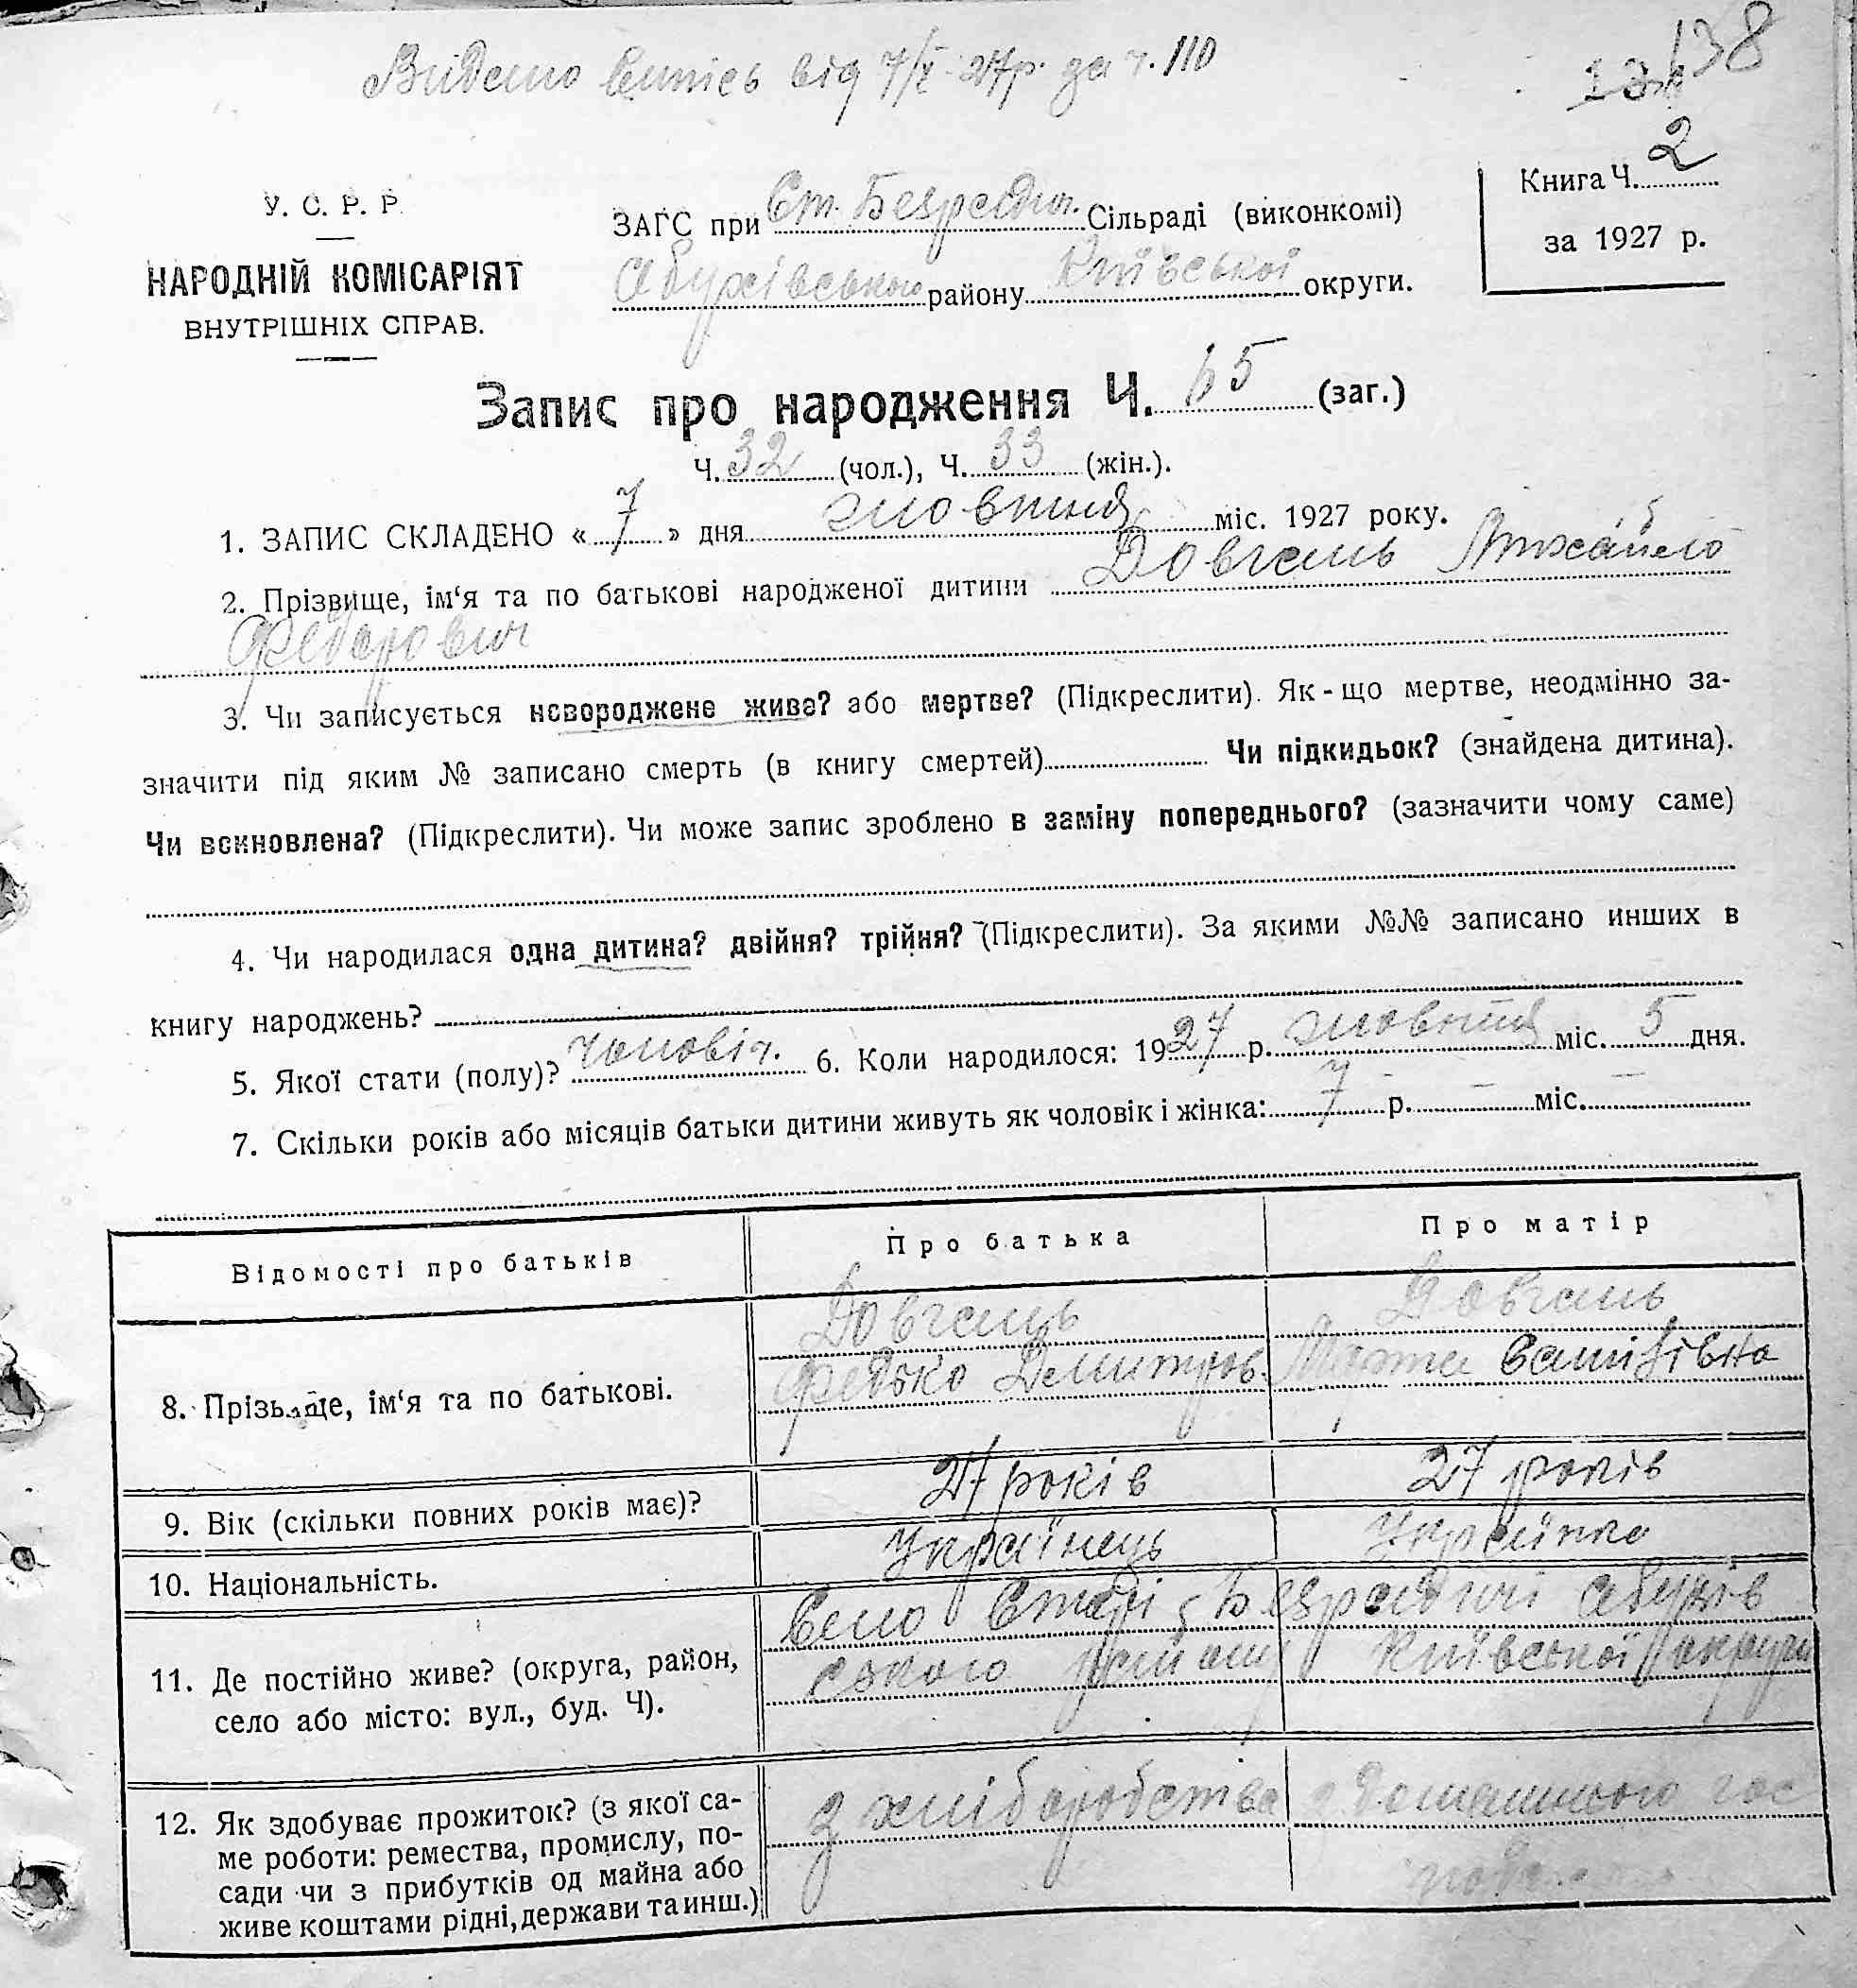 Видано витісь від 7/X - 27р. за ч. 110
138
У. С. Р. Р.
НАРОДНІЙ КОМІСАРІЯТ
ВНУТРІШНІХ СПРАВ.
ЗАГС при Ст. Безрадич. Сільраді (виконкомі)
Обухівського району Київської округи.
Книга Ч. 2
за 1927 р.
Запис про народження Ч. 65 (заг.)
Ч. 32 (чол.), Ч. 33 (жін.).
1. ЗАПИС СКЛАДЕНО « 7 » дня жовтня міс. 1927 року.
2. Прізвище, ім‘я та по батькові народженої дитини Довгань Михайло
Федорович
3. Чи записується новороджене живе? або мертве? (Підкреслити). Як - що мертве, неодмінно за-
значити під яким № записано смерть (в книгу смертей) Чи підкидьок? (знайдена дитина).
Чи всиновлена? (Підкреслити). Чи може запис зроблено в заміну попереднього? (зазначити чому саме)
4. Чи народилася одна дитина? двійня? трійня? (Підкреслити). За якими №№ записано инших в
книгу народжень?
5. Якої стати (полу)? чоловіч. 6. Коли народилося: 1927 р. жовтня міс. 5 дня.
7. Скільки років або місяців батьки дитини живуть як чоловік і жінка: 7 р. - міс. -
Відомості про батьків Про батька Про матір
8. Прізвище, ім‘я та по батькові.
Довгань Довгань
Федько Демитров. Марта Василівна
9. Вік (скільки повних років має)? 27 років 27 років
10. Національність. Українець Українка
11. Де постійно живе? (округа, район,
село або місто: вул., буд. Ч).
Село Старі-Безрадичі Обухів
ського району Київської округи
12. Як здобуває прожиток? (з якої са-
ме роботи: ремества, промислу, по-
сади чи з прибутків од майна або
живе коштами рідні, держави та инш.)
з хліборобства з домашнього гос